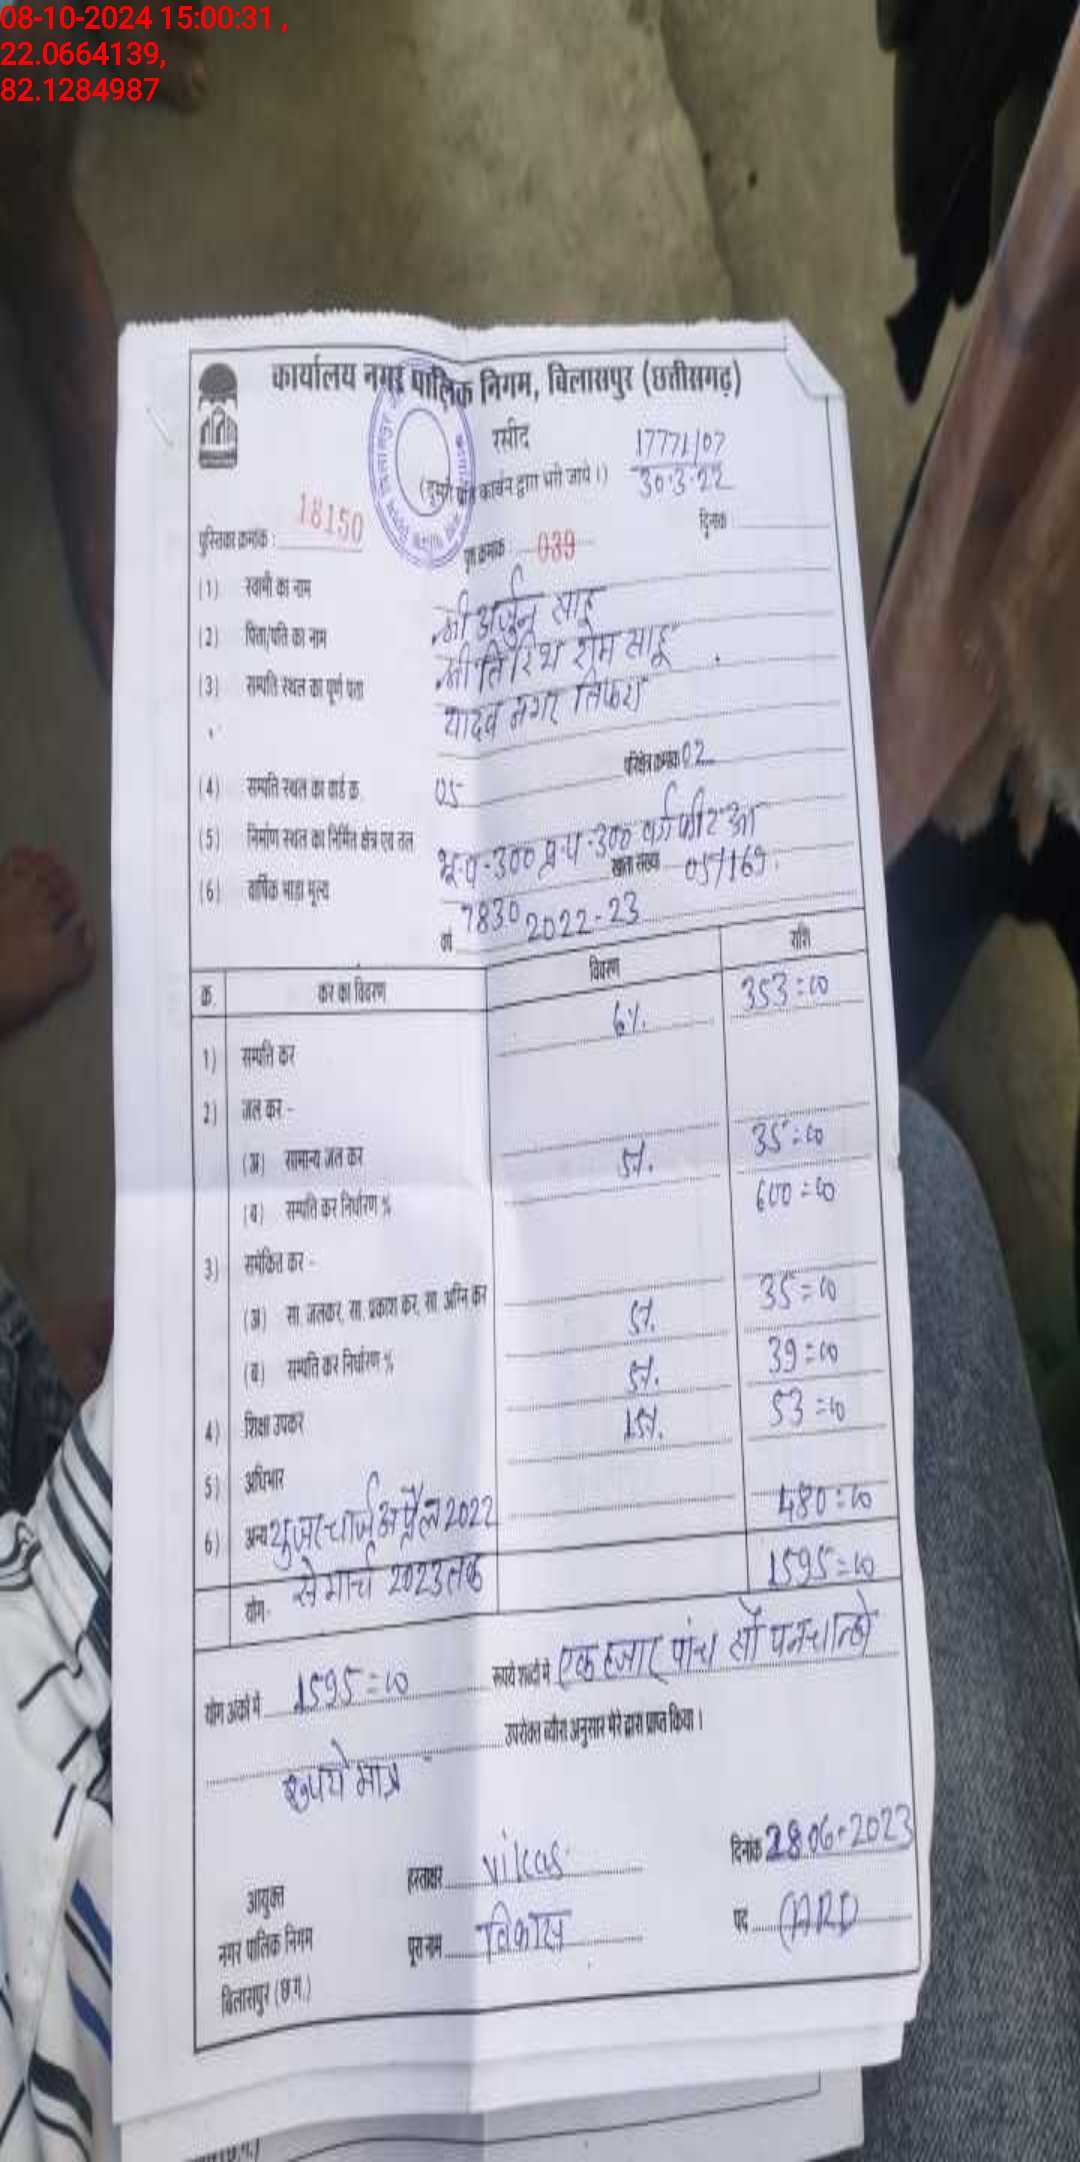 08-10-2024 15:00:31 ,
22.0664139,
82.1284987
कार्यालय नगर पालिक निगम, बिलासपुर (छत्तीसगढ़)
रसीद
17771/07
30.3.22
(दूसरी प्रति कार्बन द्वारा भरी जाये।)
दिनांक
पुस्तिका क्रमांक : 18150
पृष्ठ क्रमांक : 039
(1) स्वामी का नाम श्री अर्जुन साहू
(2) पिता/पति का नाम श्री तिरिथ राम साहू
(3) सम्पति स्थल का पूर्ण पता यादव नगर तिफरा
(4) सम्पति स्थल का वार्ड क्र. 05 परिक्षेत्र क्रमांक 02
(5) निर्माण स्थल का निर्मित क्षेत्र एवं तल भू-प-300 प्र-प-300 वर्गफीट
(6) वार्षिक भाड़ा मूल्य 7830 खाता संख्या 05/169.
वर्ष 2022-23
क्र. कर का विवरण विवरण राशि
1) सम्पति कर 6%. 353=00
2) जल कर -
(अ) सामान्य जल कर
(ब) सम्पति कर निर्धारण % 5%. 35=00
600=00
3) समेकित कर -
(अ) सा. जलकर, सा. प्रकाश कर, सा. अग्नि कर
(ब) सम्पति कर निर्धारण % 5%. 35=00
4) शिक्षा उपकर 5%. 39=00
5) अधिभार 15%. 53=00
6) अन्य युजर चार्ज अप्रैल 2022 480=00
से मार्च 2023 तक
योग- 1595=00
योग अंकों में 1595=00 रूपये शब्दों में एक हजार पांच सौ पनचान्बे
रुपये मात्र उपरोक्त ब्यौरा अनुसार मेरे द्वारा प्राप्त किया।
हस्ताक्षर vikas दिनांक 28.06-2023
आयुक्त
नगर पालिक निगम
बिलासपुर (छ.ग.)
पूरा नाम विकास पद (ARD